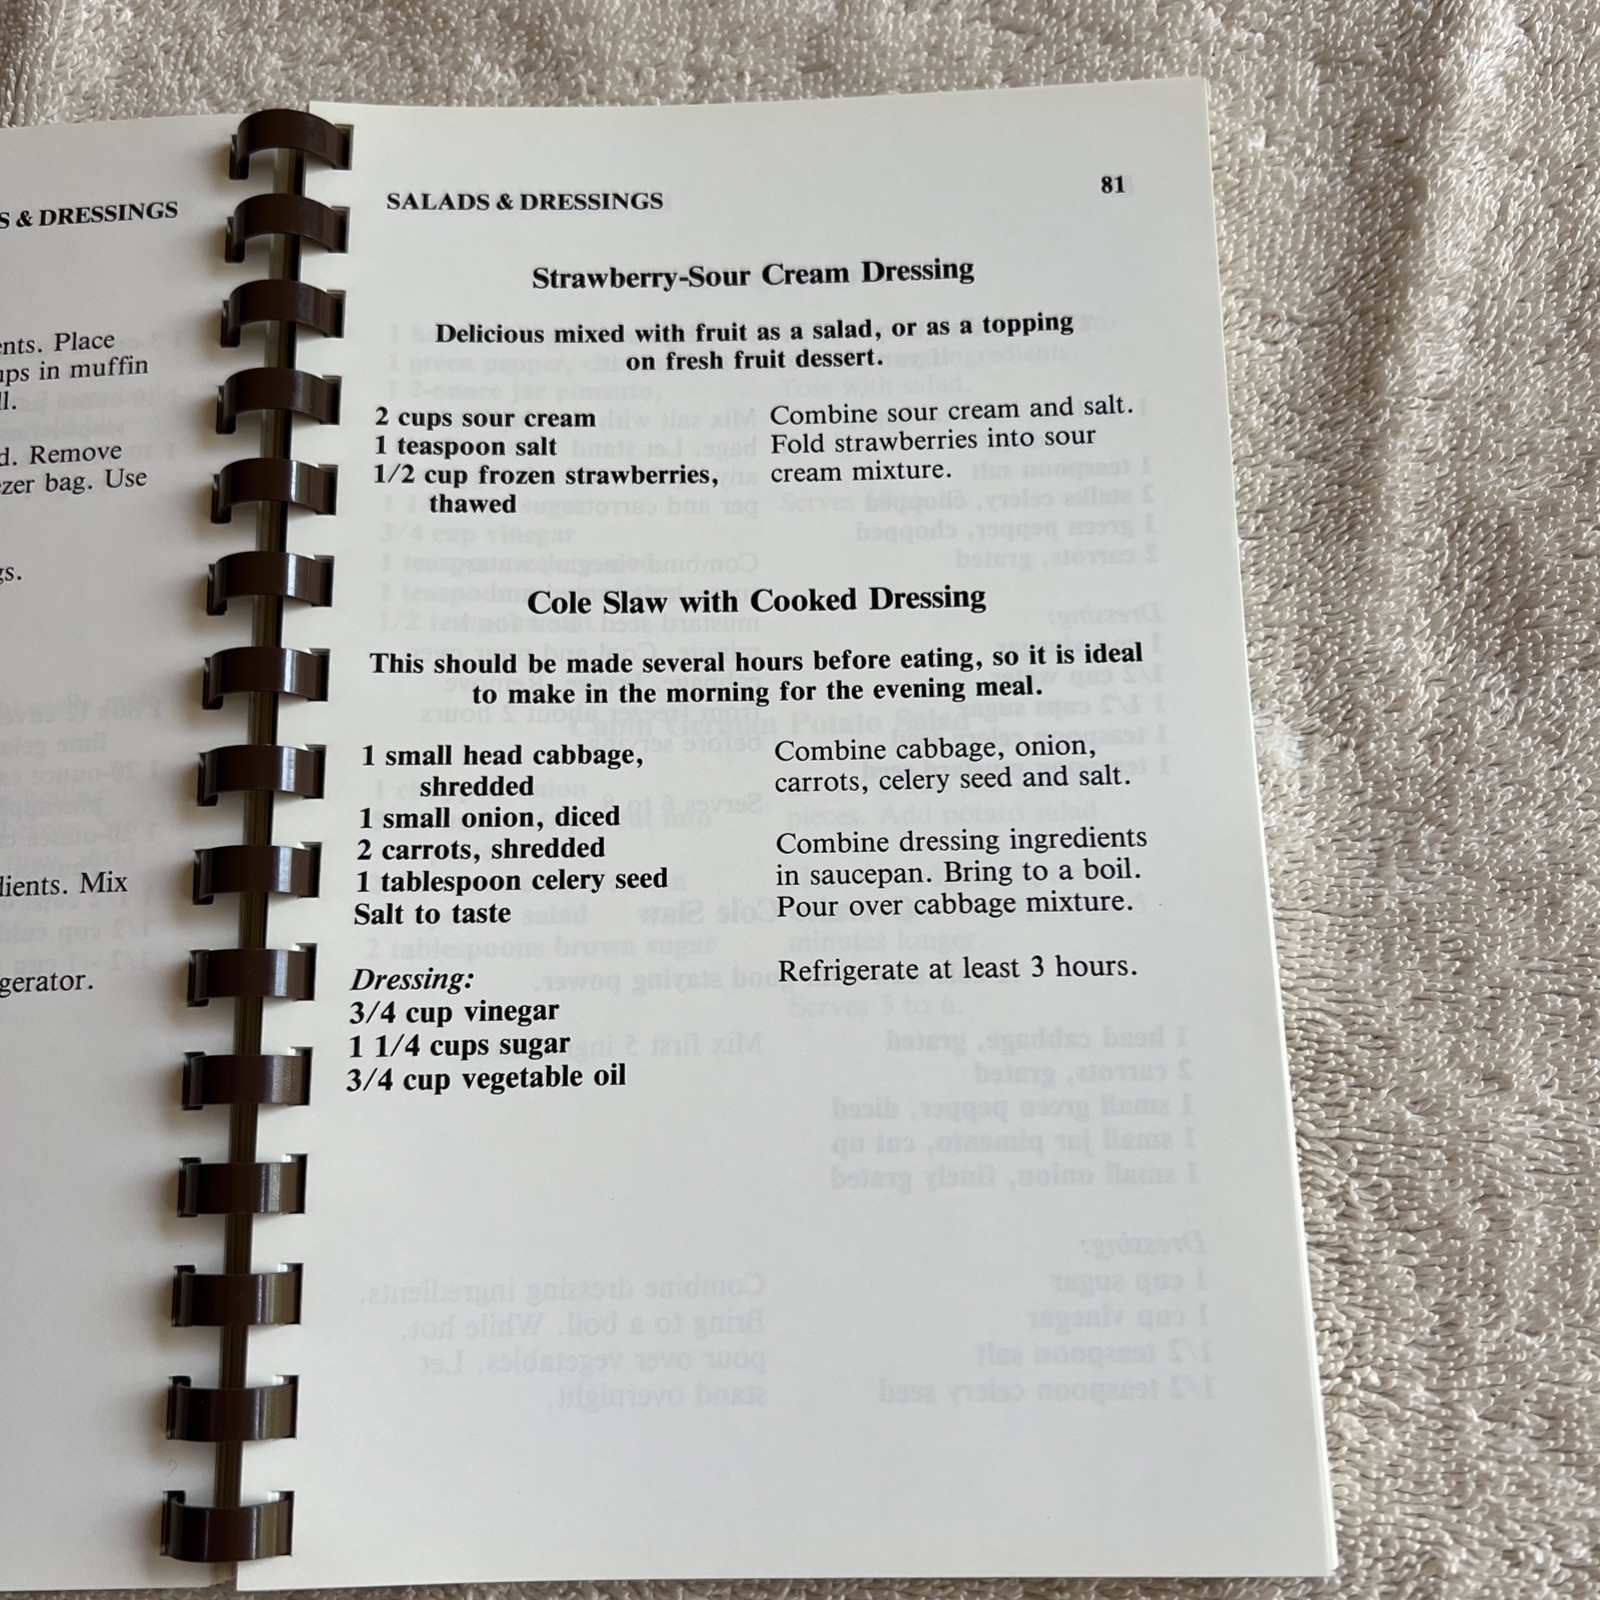 S & DRESSINGS
ents. Place
ups in muffin
ll.
d. Remove
ezer bag. Use
gs.
dients. Mix
gerator.
SALADS & DRESSINGS
81
Strawberry-Sour Cream Dressing
Delicious mixed with fruit as a salad, or as a topping
on fresh fruit dessert.
2 cups sour cream
1 teaspoon salt
1/2 cup frozen strawberries,
thawed
Combine sour cream and salt.
Fold strawberries into sour
cream mixture.
Cole Slaw with Cooked Dressing
This should be made several hours before eating, so it is ideal
to make in the morning for the evening meal.
1 small head cabbage,
shredded
1 small onion, diced
2 carrots, shredded
1 tablespoon celery seed
Salt to taste
Dressing:
3/4 cup vinegar
1 1/4 cups sugar
3/4 cup vegetable oil
Combine cabbage, onion,
carrots, celery seed and salt.
Combine dressing ingredients
in saucepan. Bring to a boil.
Pour over cabbage mixture.
Refrigerate at least 3 hours.